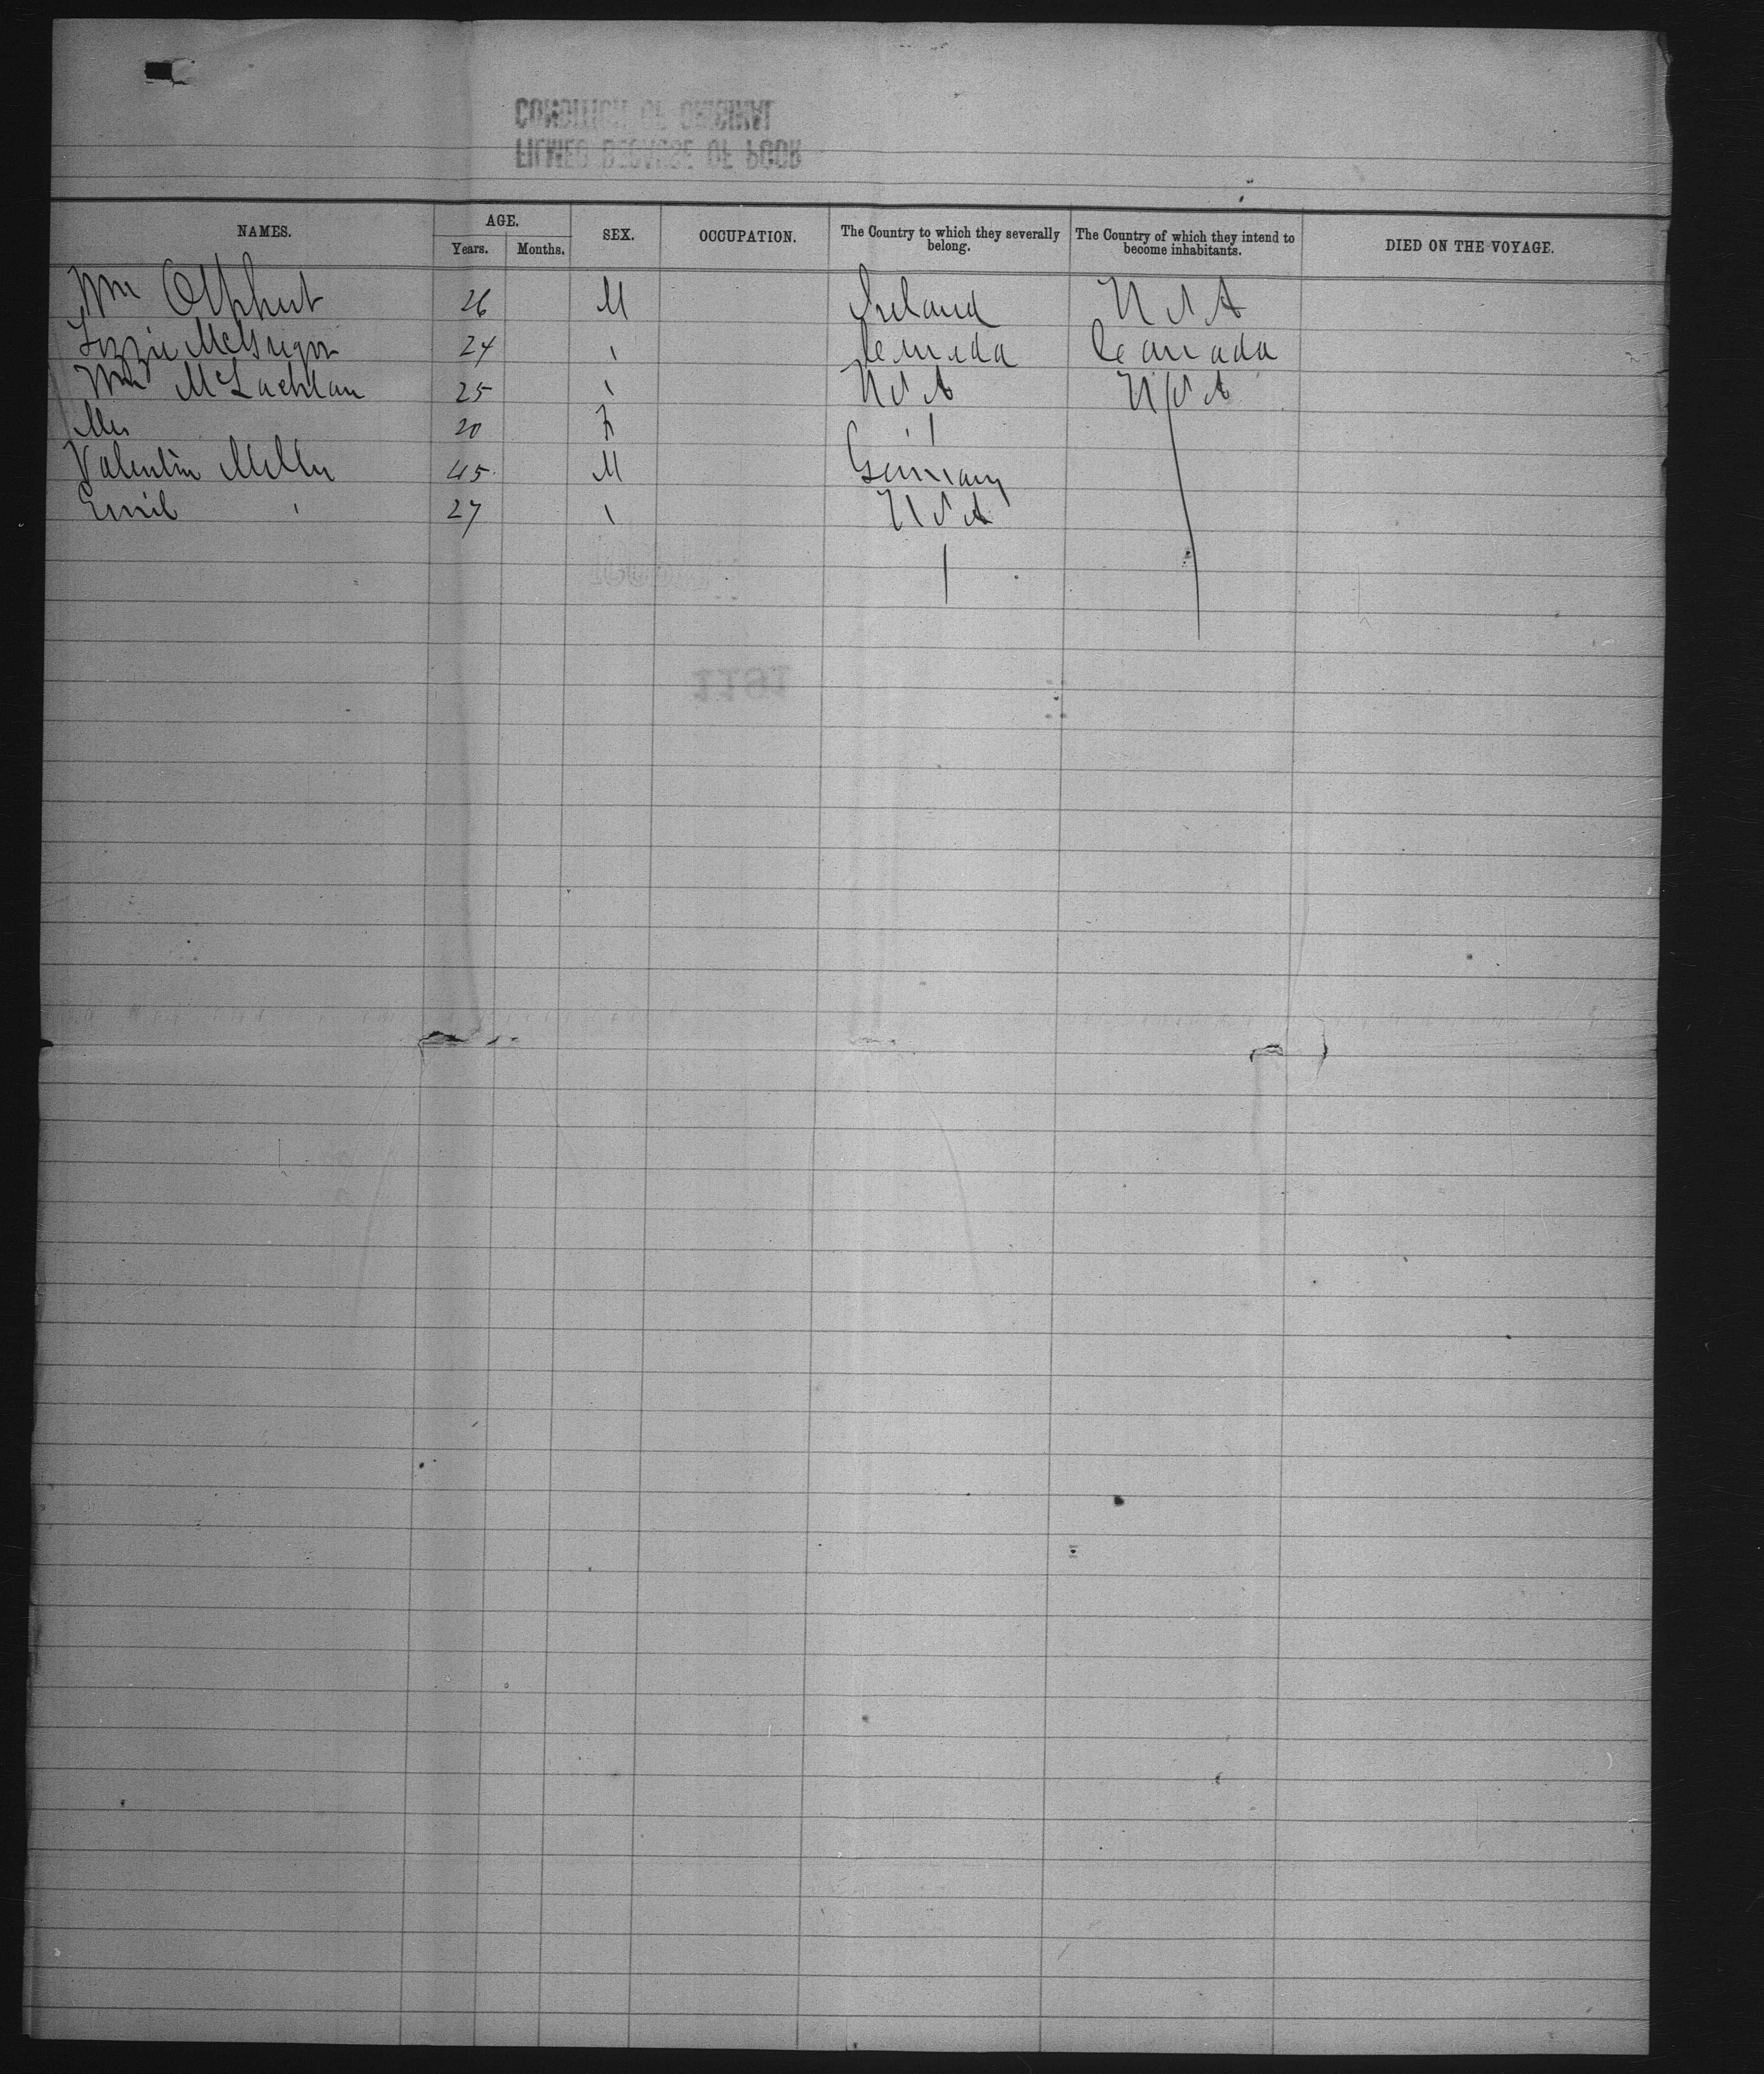 CONDITION OF ORIGINAL
FILMED BECAUSE OF POOR
NAMES. AGE. Years. Months. SEX. OCCUPATION. The Country to which they severally belong. The Country of which they intend to become inhabitants. DIED ON THE VOYAGE.
Wm Olphert 26 M Ireland U S A
Lizzie McGregor 24 " Canada Canada
Wm McLachlan 25 " U S A U S A
Mrs 20 F "
Valentin Miller 45 M Germany
Emil " 27 " U S A
1191